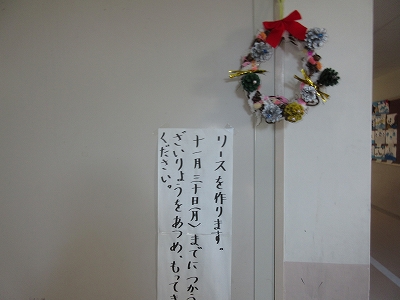 リースを作ります。
十一月三十日(月)までにつかう
ざいりょうをあつめ、もってき
ください。